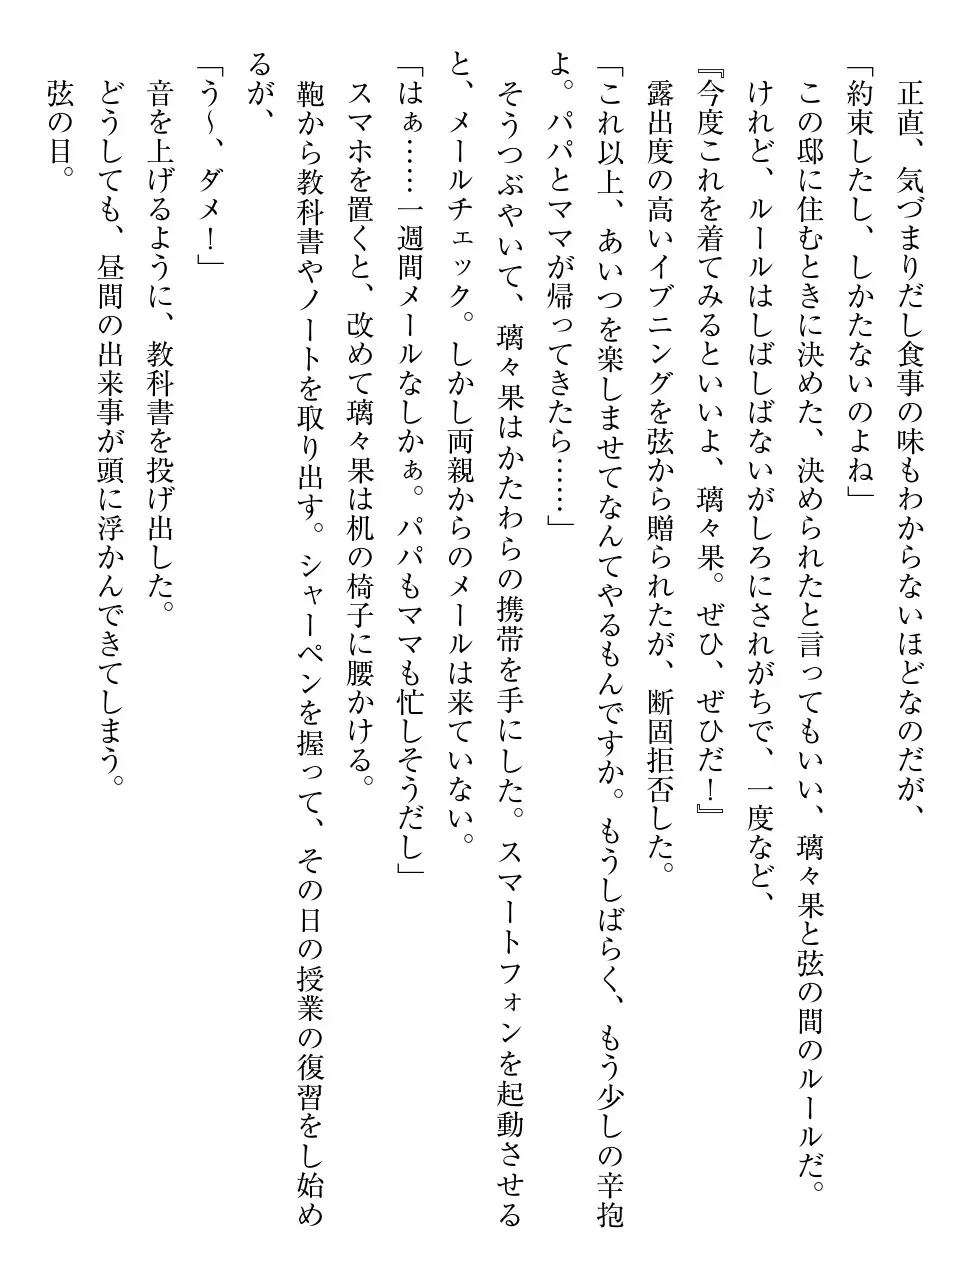 正直、気づまりだし食事の味もわからないほどなのだが、
「約束したし、しかたないのよね」
この邸に住むときに決めた、決められたと言ってもいい、璃々果と弦の間のルールだ。
けれど、ルールはしばしばないがしろにされがちで、一度など、
『今度これを着てみるといいよ、璃々果。ぜひ、ぜひだ！』
露出度の高いイブニングを弦から贈られたが、断固拒否した。
「これ以上、あいつを楽しませてなんてやるもんですか。もうしばらく、もう少しの辛抱
よ。パパとママが帰ってきたら……」
そうつぶやいて、璃々果はかたわらの携帯を手にした。スマートフォンを起動させる
と、メールチェック。しかし両親からのメールは来ていない。
「はぁ……一週間メールなしかぁ。パパもママも忙しそうだし」
スマホを置くと、改めて璃々果は机の椅子に腰かける。
鞄から教科書やノートを取り出す。シャーペンを握って、その日の授業の復習をし始め
るが、
「う～、ダメ！」
音を上げるように、教科書を投げ出した。
どうしても、昼間の出来事が頭に浮かんできてしまう。
弦の目。